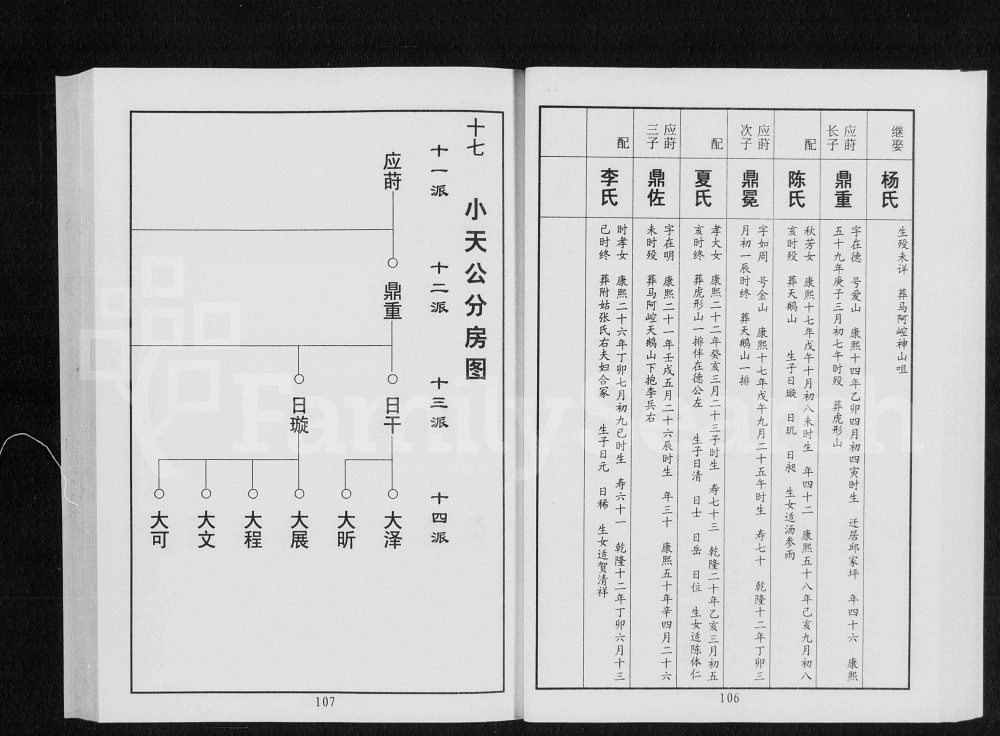 继娶
杨氏
生殁未详 葬马阿崆神山咀
应莳
长子
鼎重
字在德 号爱山 康熙十四年乙卯四月初四寅时生 迁居邱家坪 年四十六 康熙
五十九年庚子三月初七午时殁 葬虎形山
配
陈氏
秋芳女 康熙十七年戊午十月初八未时生 年四十二 康熙五十八年己亥九月初八
亥时殁 葬天鹅山 生子日璇 日玑 日昶 生女适汤参雨
应莳
次子
鼎冕
字如周 号金山 康熙十七年戊午九月二十五午时生 寿七十 乾隆十二年丁卯三
月初一辰时终 葬天鹅山一排
配
夏氏
孝大女 康熙二十二年癸亥三月二十三子时生 寿七十三 乾隆二十年乙亥三月初五
亥时终 葬虎形山一排伴在德公左 生子日清 日士 日岳 日位 生女适陈体仁
应莳
三子
鼎佐
字在明 康熙二十一年壬戌五月二十六辰时生 年三十 康熙五十年辛四月二十六
未时殁 葬马阿崆天鹅山下抱李兵右
配
李氏
时孝女 康熙二十六年丁卯七月初九巳时生 寿六十一 乾隆十二年丁卯六月十三
巳时终 葬附姑张氏右夫妇合冢 生子日元 日稀 生女适贺清祥
106
十七 小天公分房图
十一派
十二派
十三派
十四派
应莳
鼎重
日干
日璇
大泽
大昕
大展
大程
大文
大可
107
FamilySearch